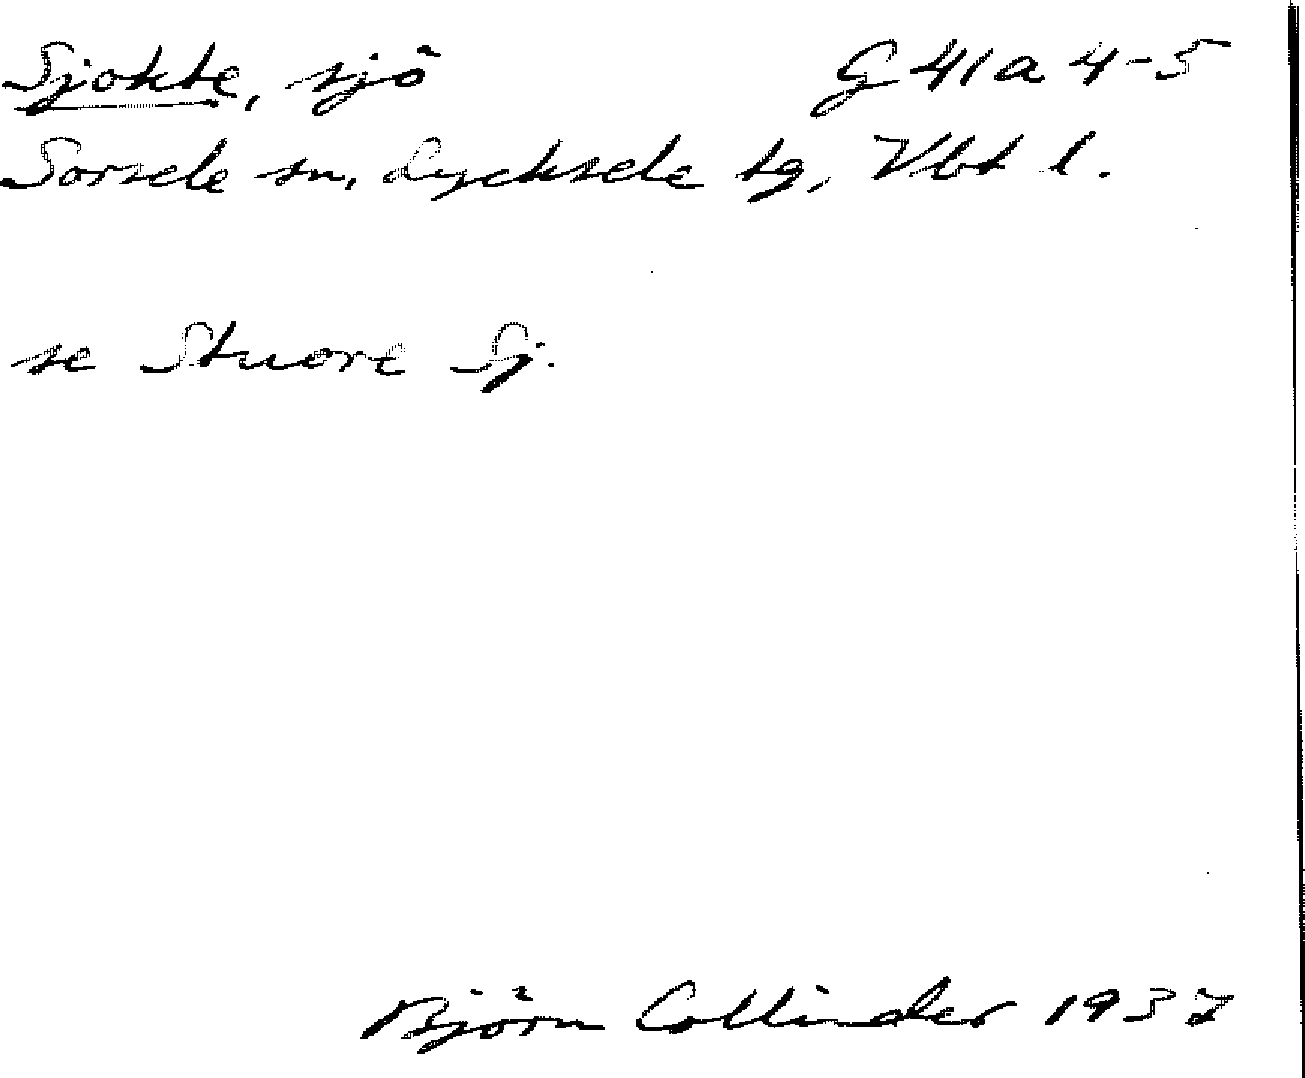 Sjokte, sjö G 41a 4-5
Sorsele sn, Lycksele tg, Vbt l.
se Stuore Sj.
Björn Collinder 1937